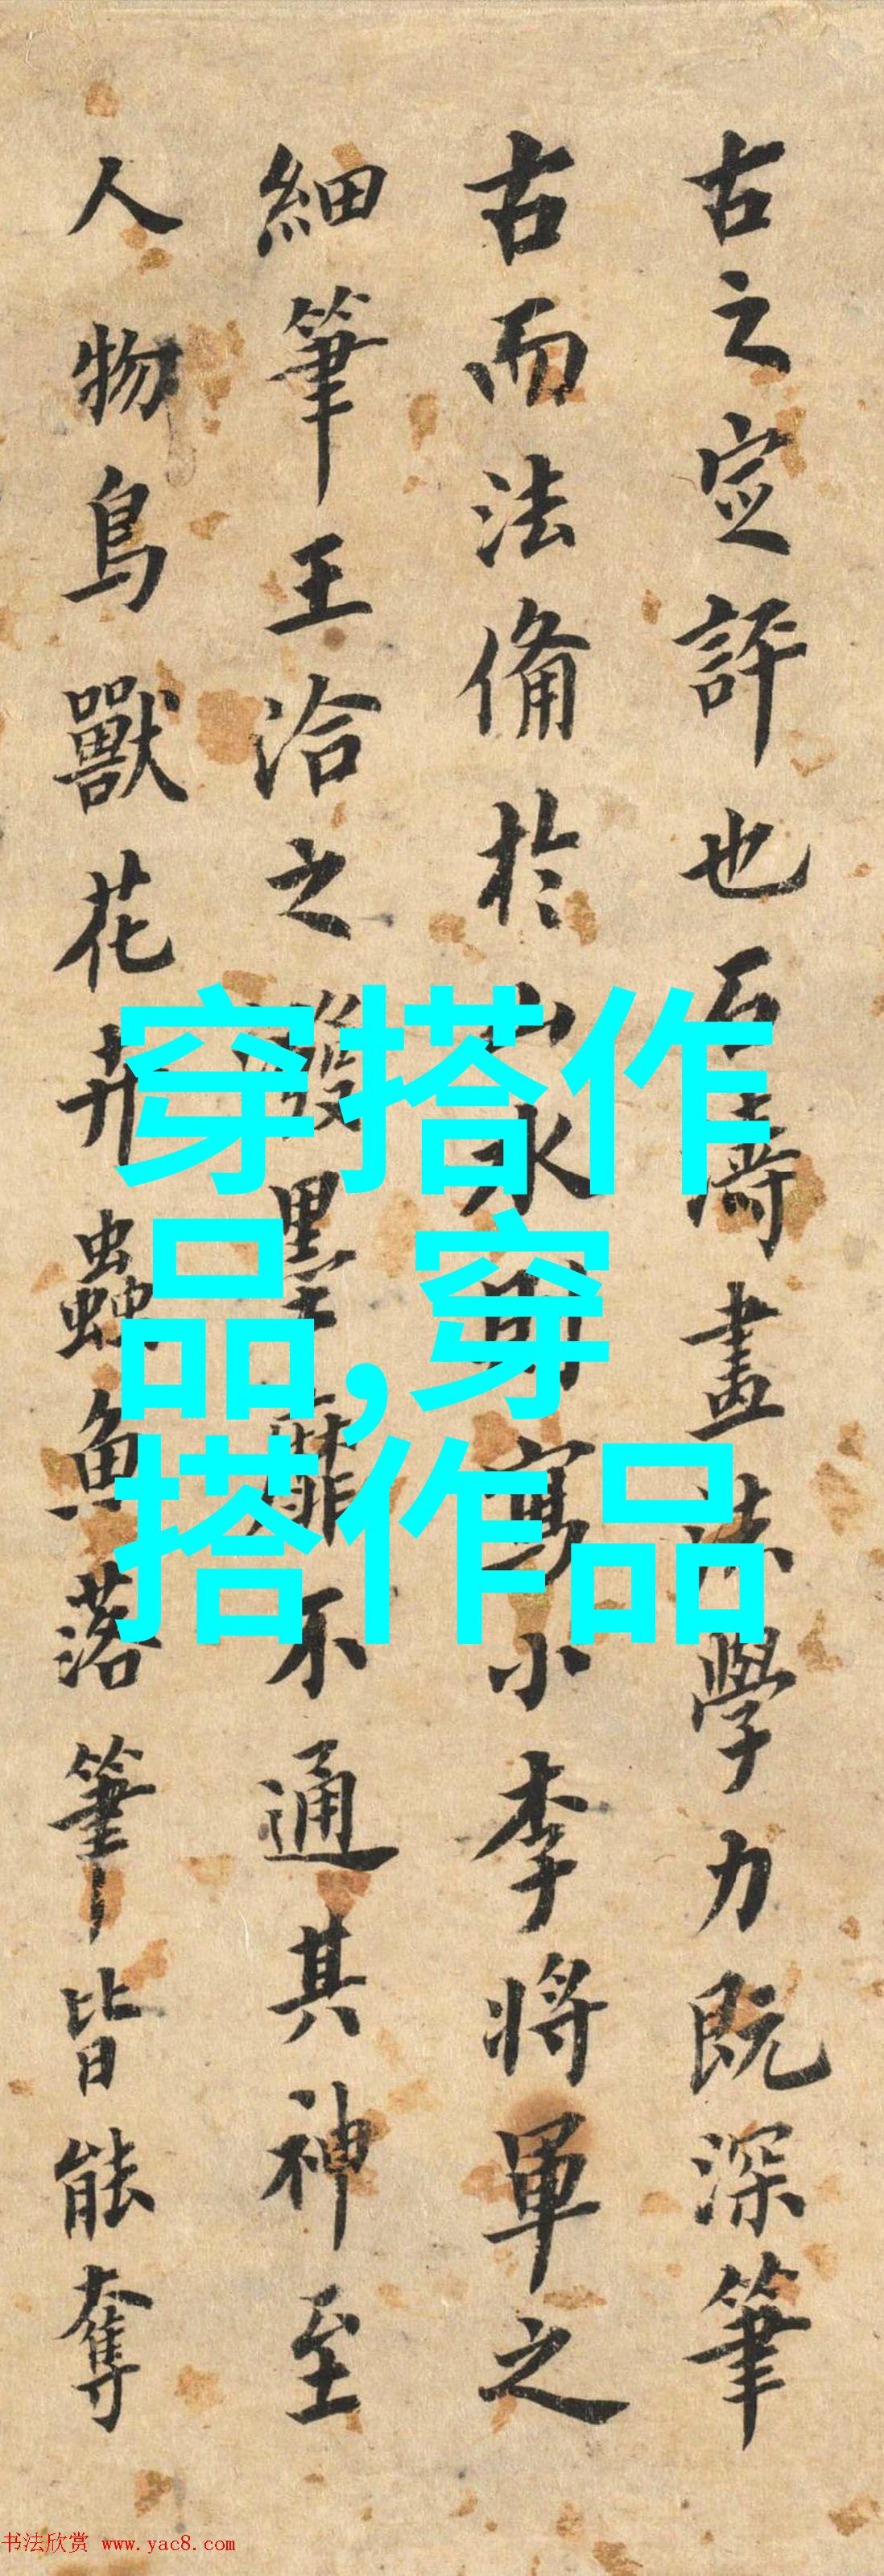 古之定評也石濤畫法學力既深筆
古而法備於山水則寫小李將軍之
細筆王洽之潑墨靡不通其神至
人物鳥獸花卉蟲魚落筆皆能奪
穿搭作
品,穿
搭作品
书法欣赏 www.yac8.com